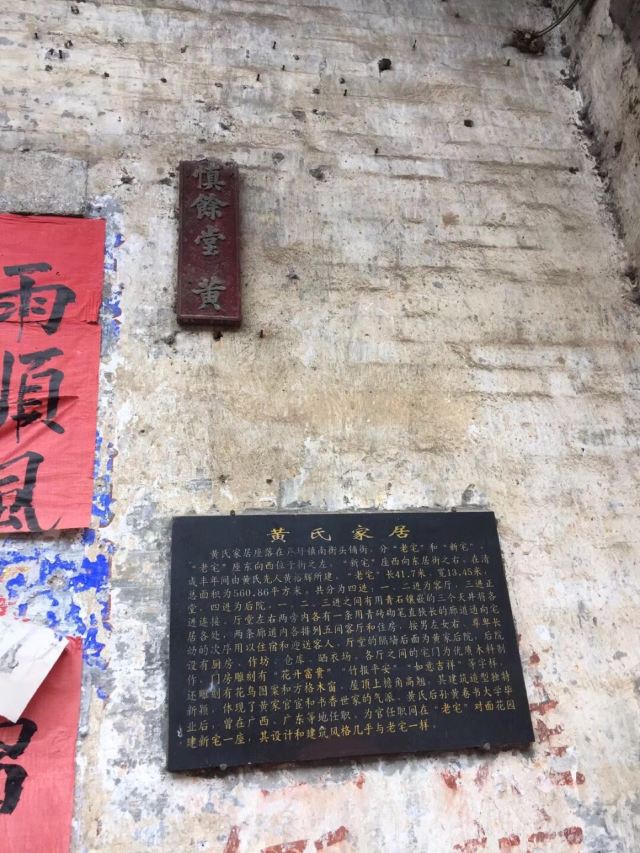 慎餘堂 黃
雨順風
黄氏家居
黄氏家居座落在 镇南街头铺街，分“老宅”和“新宅”，
“老宅”座东向西位于街之左，“新宅”座西向东居街之右。在清
咸丰年间由黄氏先人黄 辉所建。“老宅”长41.7米，宽13.45米，
总面积为560.86平方米。共分为四进：一、二进为客厅，三进正
堂，四进为后院，一、二、三进之间有用青石镶嵌的三个天井将各
进连接。厅堂左右两旁内各有一条用青砖砌笔直狭长的廊道通向宅
居各处，两条廊道内各排列五间客厅和住房，按男左女右、尊卑长
幼的次序用以住宿和迎送客人。厅堂的隔墙后面为黄家后院，后院
设有厨房、作坊、仓库、晒衣场。各厅之间的宅门为优质木料制
作，门房雕刻有“花开富贵”、“竹报平安”、“如意吉祥”等字样，
还雕刻有花鸟图案和方格木窗，屋顶上檐角高翘。其建筑造型独特
新颖，体现了黄家官宦和书香世家的气派。黄氏后孙黄春书大学毕
业后，曾在广西、广东等地任职，为官任职间在“老宅”对面花园
建新宅一座，其设计和建筑风格几乎与老宅一样。